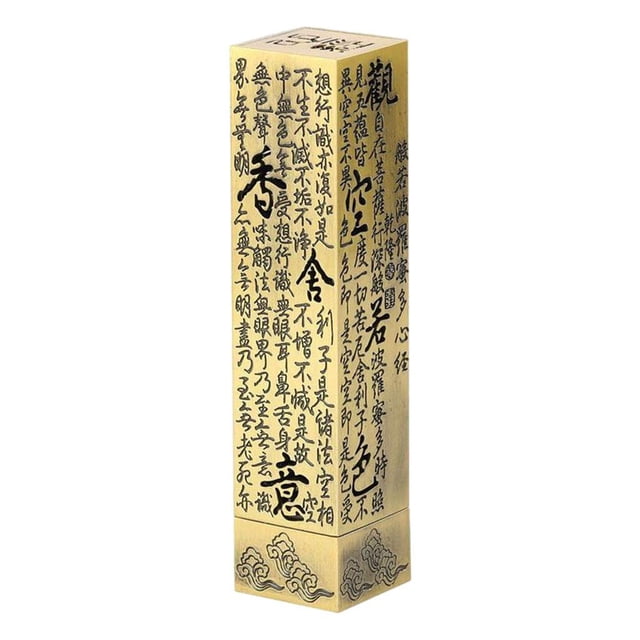 般若波羅蜜多心経
乾隆
觀自在菩薩行深般若波羅蜜多時照
見五蘊皆空度一切苦厄舍利子色不
異空空不異色色即是空空即是色受
想行識亦復如是舍利子是諸法空相
不生不滅不垢不淨不增不減是故空
中無色無受想行識無眼耳鼻舌身意
無色聲香味觸法無眼界乃至無意識
界無無明亦無無明盡乃至無老死亦